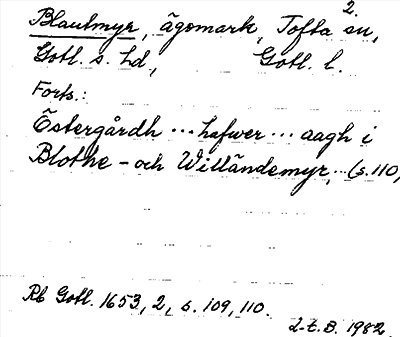 2.
Blautmyr, ägomark, Tofta sn,
Gotl. s. hd, Gotl. l.
Forts.:
Östergårdh ... hafwer ... aagh i
Blothe - och Willändemyr, ... (s.110,
Rb Gotl. 1653, 2, s. 109, 110.
L.t.B. 1982